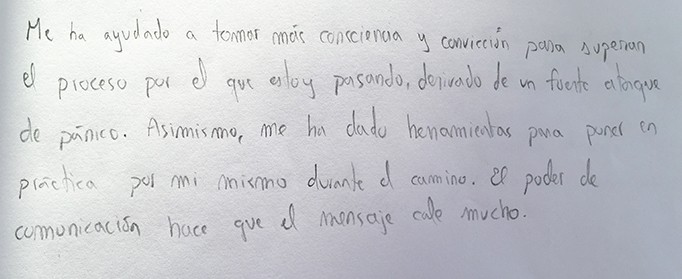 Me ha ayudado a tomar más consciencia y convicción para superar
el proceso por el que estoy pasando, derivado de un fuerte ataque
de pánico. Asimismo, me ha dado herramientas para poner en
práctica por mi mismo durante el camino. El poder de
comunicación hace que el mensaje cale mucho.